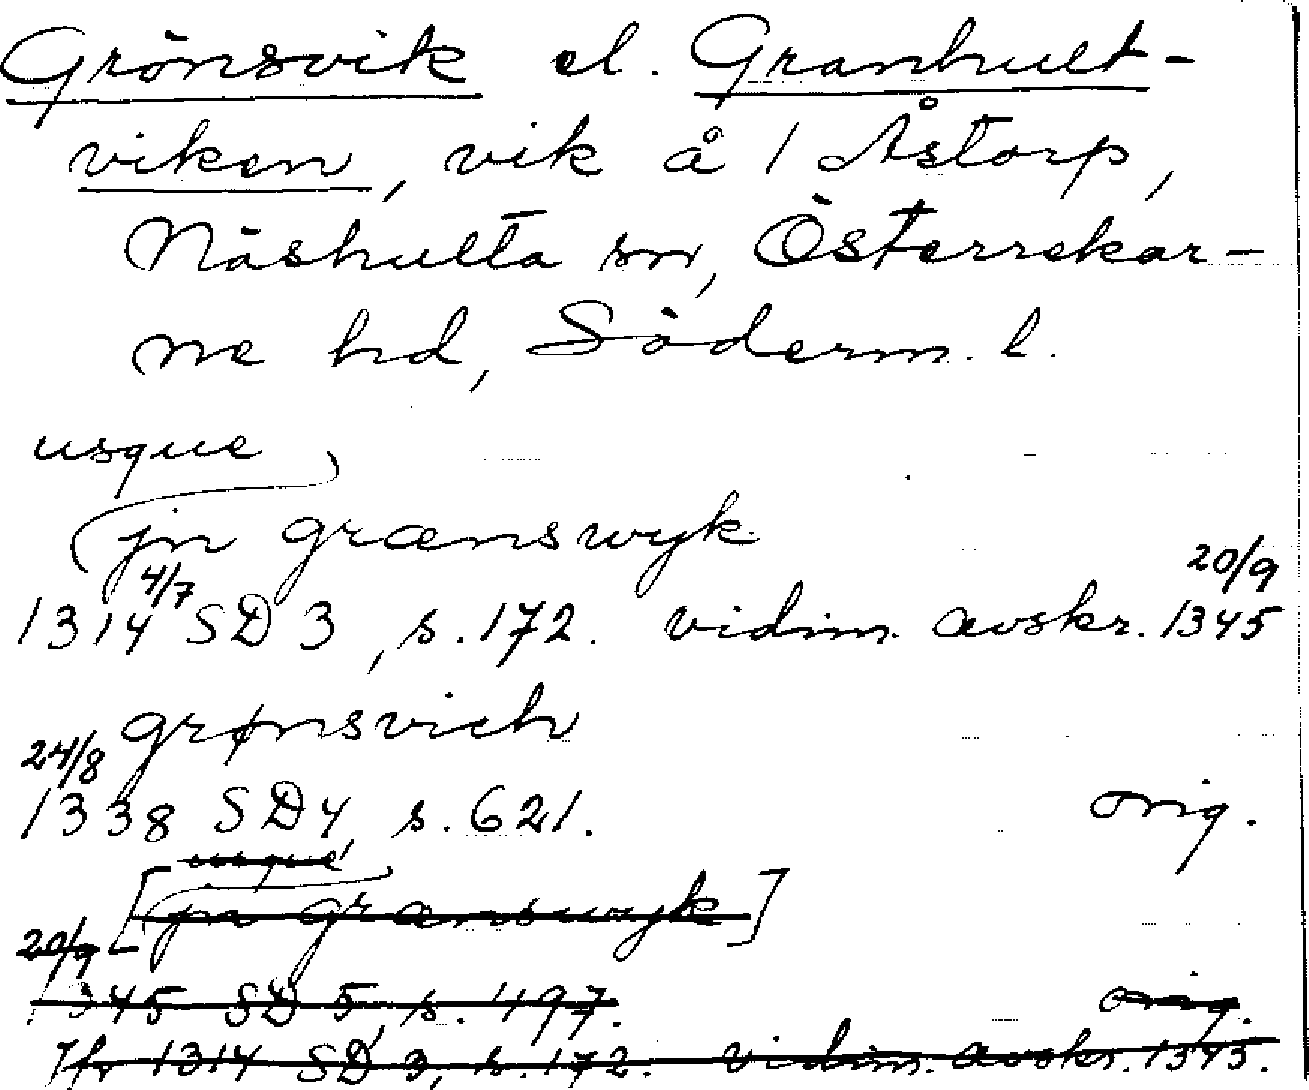 Grönsvik el. Granhult-
viken, vik å 1 Åstorp,
Näshulta sn, Österrekar-
ne hd, Söderm. l.
usque
jn grænswyk
1314 4/7 SD 3, s. 172. vidim. avskr. 20/9 1345
grønsvich
24/8 1338 SD 4, s. 621. orig.
usque
[jn grænswyk]
20/9 1345 SD 5, s. 497. orig.
Jfr 1314 SD 3, s. 172. vidim. avskr. 1345.